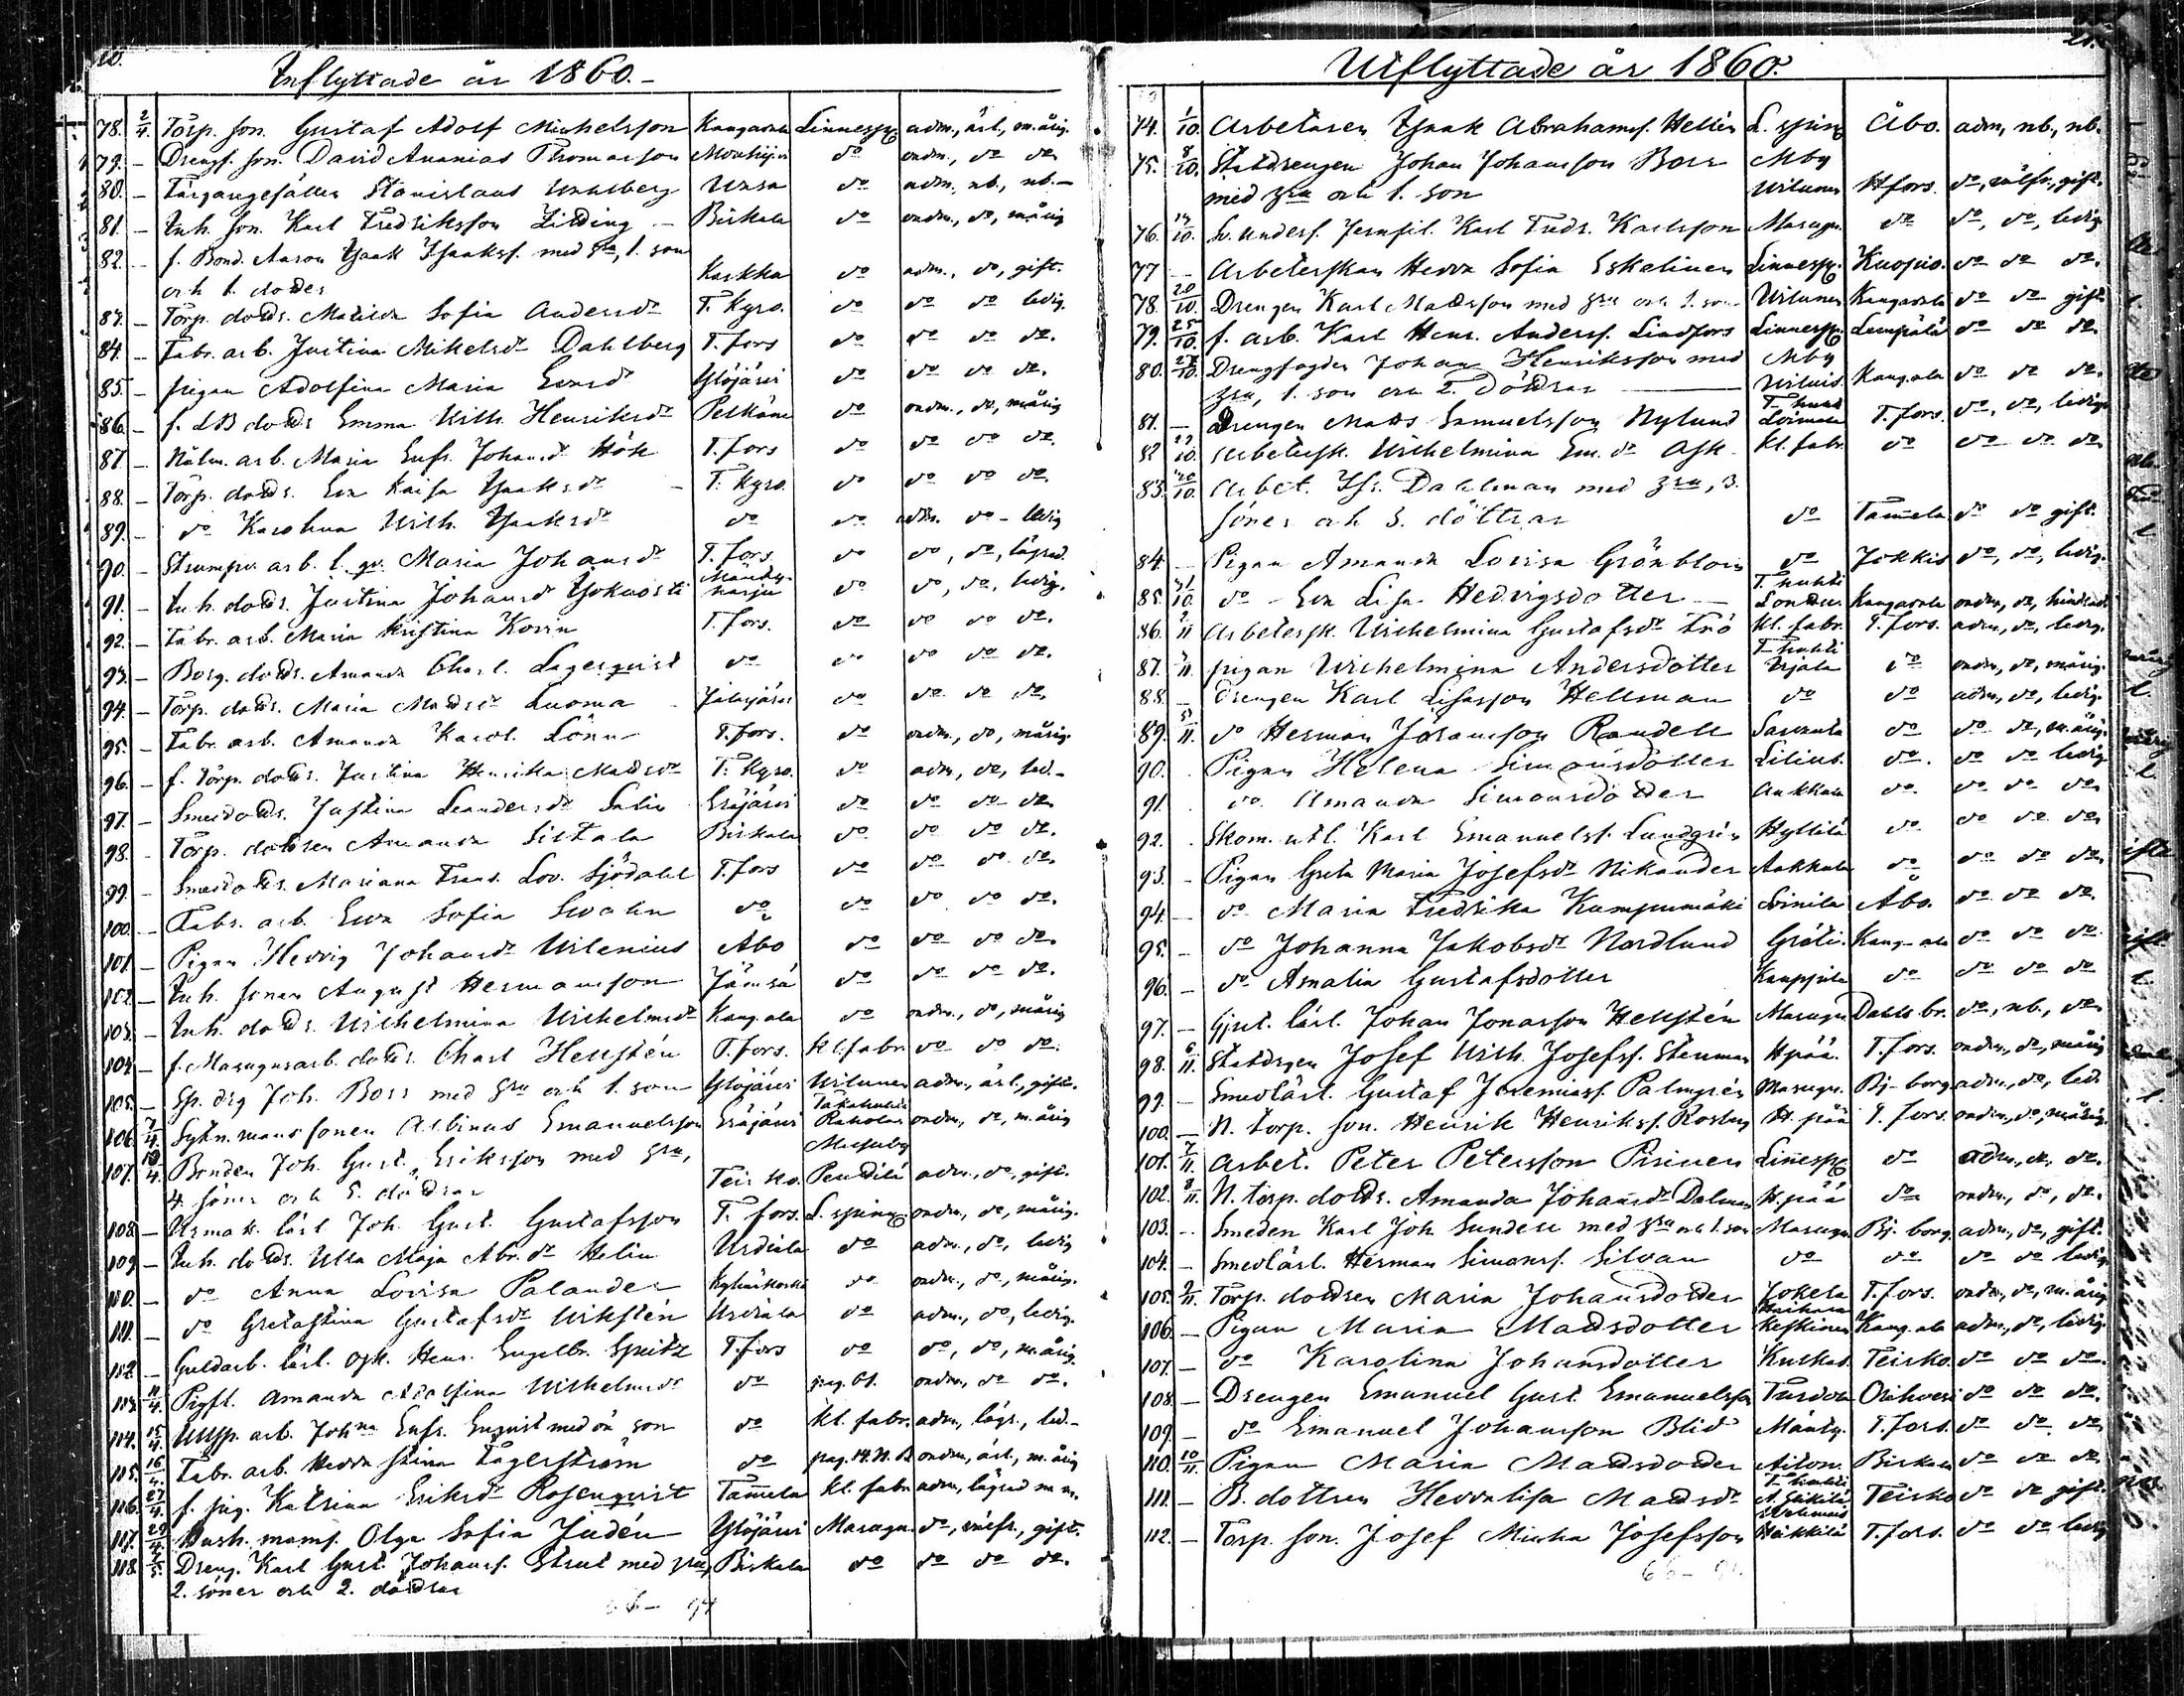 Inflyttade år 1860.-
78. 2/4. Torp. son. Gustaf Adolf Michelsson Kangasala Linnespg adm., ärl., m.årig.
79. - Drengs. son. David Ananias Thomasson do ondm., do do
80. - Färgaregesällen Stanislaus Wasa do adm. nb., nb.-
81. - Inh. son. Karl Fredriksson Lilding - Birkala do ondm., do, mårig
82. - f. Bond. Aaron Isaak Isaakss. med hru, 1. son
och 1. dotter Karkku do adm., do, gift.
83. - Torp. dottr. Matilda Sofia Andersdr T. Kyro. do do do ledig.
84. - Fabr. arb. Justina Mikelsdr Dahlberg T.fors do do do do.
85. - pigan Adolfina Maria Ylöjärvi do do do do.
86. - f. LB dottr Emma Wilh. Henriksdr Pelkäne do ondm., do, mårig
87. - arb. Maria Eufr. Johansdr Höök T.fors do do do do.
88. - Torp. dottr. Eva Kaisa Isaaksdr - T. Kyro. do do do do.
89. - do Karolina Wilh. Isaaksdr do do adm. do - ledig
90. - Strumpv. arb. l. qv. Maria Johansdr T.fors. do do, do, lägrad.
91. - Inh. dottr. Justina Johansdr do do, do, ledig.
92. - Fabr. arb. Maria Kristina Korin T.fors. do do do do.
93. - Borg. dottr. Amanda Charl. Lagerqvist do do do do do.
94. - Torp. dottr. Maria Mattsdr Luoma Jalasjärvi do do do do.
95. - Fabr. arb. Amanda Karol. Lönn T.fors. do ondm., do, mårig.
96. - f. Torp. dottr. Justina Henrika Mattsdr T. Kyro. do adm, do, led.-
97. - Smeddottr. Justina Leandersdr Salin Eräjärvi do do do do
98. - Torp. dottren Amanda Siltala Birkala do do do do.
99. - Smeddottr. Mariana Frans. Lov. Sjödahl T.fors do do do do.
100. - Fabr. arb. Eva Sofia Svahn do do do do do.
101. - Pigan Hedvig Johansdr Wilenius Åbo do do do do
102. - Inh. sonen August Hermansson Jämsä do do do do.
103. - Inh. dottr. Wilhelmina Wilhelmsdr Kang.ala do ondm., do, mårig
104. - f. Masugnsarb. dottr. Charl Hellstén T.fors. kl. fabr do do do.
105. - Sp. drg Joh. Boss med hru och 1. son Ylöjärvi Wilunen adm., ärl., gift.
106. 7/4. Sytn. mans sonen Albinus Emanuelsson Eräjärvi Takahuhti Rahola ondm., do, m.årig
107. 10/4. Bonden Joh. Gust. Eriksson med hru,
4. söner och 5. döttrar Teisko. Messuby Penttilä adm., do, gift.
108. - Urmak. lärl Joh. Gust. Gustafsson T. fors. L. spinng. ondm., do, mårig.
109. - Inh. dottr. Ulla Maja Abr.dr Helin Urdiala do adm., do, ledig
110. - do Anna Lovisa Palander do ondm., do, mårig.
111. - do Gretastina Gustafsdr Wikstén Urdiala do adm., do, ledig.
112. - Guldarb. lärl. Osk. Henr. Engelbr. Spitz T.fors do do, do, m.årig.
113. 11/4. Pigfl. Amanda Adolfina Wilhelmsdr do pag. 61. ondm., do do.
114. 15/4. arb. Johna Eufr. Engvist med oä son do kl. fabr. adm., lägr., led.-
115. 16/4. Fabr. arb. Hedda Stina Fagerström do pag. 14. N.B. ondm., ärl., m.årig
116. 27/4. f. pig. Katrina Eriksdr Rosenqvist Tammela kl. fabr adm, lägrad m m.
117. 29/4. Hush. mams. Olga Sofia Judén Ylöjärvi Masugn do, välfr., gift.
118. 2/5. Dreng. Karl Gust. Johanss. Strut med hru, Birkala do do do do.
2. söner och 2. döttrar
66- 94
21.
Utflyttade år 1860.
74. 1/10. Arbetaren Isaak Abrahams. Hellin L. spinng Åbo. adm, nb., nb.
75. 8/10. Statdrengen Johan Johansson Boss Mby
med hru och 1. son Wilunen Hfors. do, välfr., gift.
76. 14/10. Sv. unders. Jernfil. Karl Fredr. Karlsson Masugn. do do, do, ledig
77 - Arbeterskan Hedda Sofia Eskelinen Linnespg. Kuopio. do do do.
78. 20/10. Drengen Karl Mattsson med hru och 1. son Wilunen Kangasala do do gift.
79. 25/10. f. arb. Karl Henr. Anderss. Lindfors Linnespg. Lempälä do do do
80. 27/10. Drengfogden Johan Henriksson med Mby
hru, 1. son och 2. döttrar Kang.ala do do do.
81. - Drengen Matts Samuelsson Nylund T. huhti T.fors. do, do, ledig
82. 29/10. Arbetersk. Wilhelmina Em. dr Ask kl. fabr. do do do do
83. 30/10. Arbet. Isr. Dahlman med hru, 3.
söner och 3. döttrar do Tammela do do gift.
84. - Pigan Amanda Lovisa Grönblom do Jokkis do, do, ledig.
85. 31/10. do - Eva Lisa Hedvigsdotter - T. huhti Kangasala ondm, do, hindrad
86. 2/11 Arbetersk. Wilhelmina Gustafsdr Frö kl. fabr. T.fors. adm, do, ledig.
87. 3/11. pigan Wilhelmina Andersdotter T. huhti Ujala do ondm, do, mårig.
88. - drengen Karl Lisasson Hellman do do adm, do, ledig.
89. 5/11. do Herman Johansson Randell do do do, m.årig.
90. . Pigan Helena Simonsdotter Lilius. do. do do ledig
91. . do. Amanda Simonsdotter Aakkula do. do do do
92. . Skom. utl. Karl Emanuelss. Lundgrén Hyllilä do do do do
93. - Pigan Greta Maria Josefsdr Nikander Aakkula do do do do
94. - do Maria Fredrika Kumpumäki Åbo. do do do.
95. - do Johanna Jakobsdr Nordlund Gröti. Kang-ala do do do
96. - do Amalia Gustafsdotter Kauppila do do do do
97. - Gjut. lärl. Johan Jonasson Hellstén Masugn Dahls br. do, nb., do
98. 6/11. Statdrgen Josef Wilh. Josefss. Stenman H.pää. T.fors. ondm, do, mårig
99. - Smedlärl. Gustaf Jeremiass. Palmgrén Masugn. Bj-borg adm., do, led.
100. - N. torp. son. Henrik Henrikss. Rosberg H.pää T. fors. ondm, do, mårig.
101. 7/11. Arbet. Peter Petersson Pirinen Linnespg do adm., do, do.
102. 8/11. N. torp. dottr. Amanda Johansdr Dalman H.pää do ondm., do, do.
103. - Smeden Karl Joh Sundell med hru och 1. son Masugn Bj. borg. adm, do, gift.
104. - Smedlärl. Herman Simonss. Silvan do do do do ledig
105. 9/11. Torp. dottren Maria Johansdotter Jokela T.fors. ondm, do, m.årig
106. - Pigan Maria Mattsdotter Haihara Keskinen Kang.ala adm, do, ledig.
107. - do Karolina Johansdotter Teisko. do do do.
108. - Drengen Emanuel Gust. Emanuelsson Turdola Orihvesi do do do.
109. - do Emanuel Johansson Blid Mänty. T.fors. do do do
110. 10/11. Pigan Maria Mattsdotter Aiton. Birkala do do do
111. - B. dottren Heddalisa Mattsdr T. huhti Teisko do do gift.
112. - Torp. son. Josef Micha Josefsson Häkkilä T.fors. do do ledig
66-